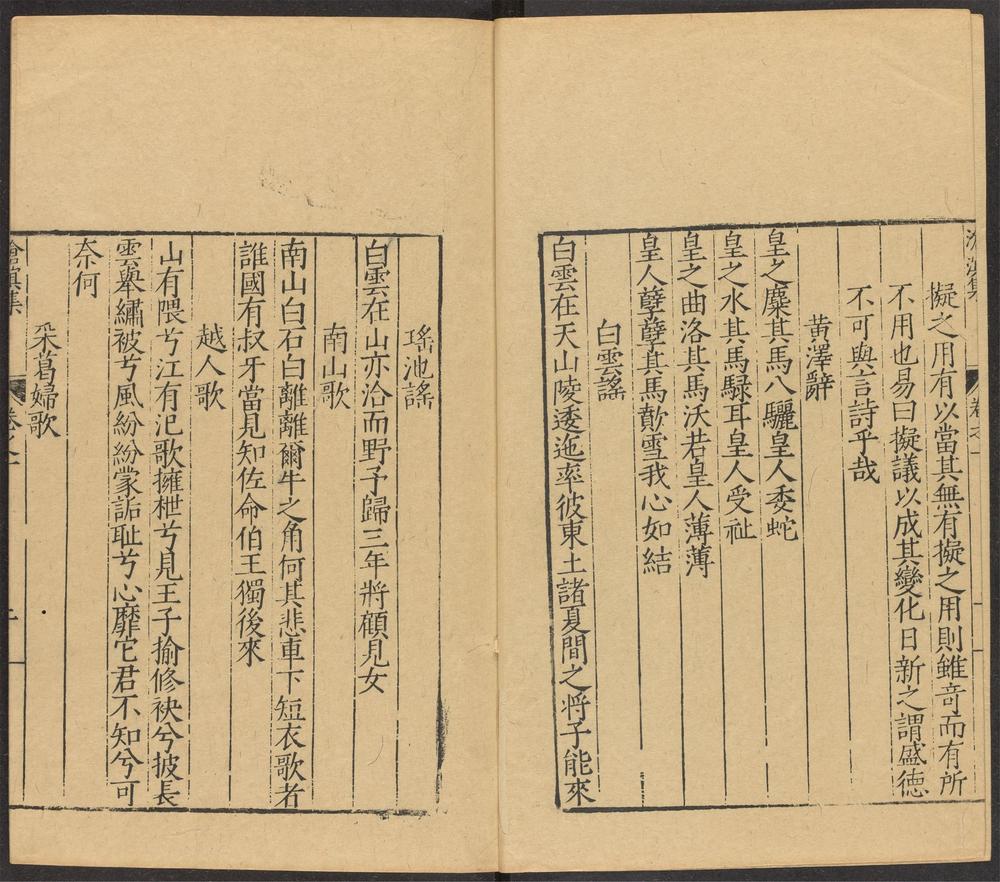 滄溟集 卷之一
擬之用有以當其無有擬之用則雖奇而有所
不用也易曰擬議以成其變化日新之謂盛德
不可與言詩乎哉
黄澤辭
皇之麋其馬八驪皇人委蛇
皇之水其馬騄耳皇人受祉
皇之曲洛其馬沃若皇人薄薄
皇人孽孽其馬歕雪我心如結
白雲謠
白雲在天山陵逶迤率彼東土諸夏間之將子能來
瑤池謠
白雲在山亦洽而野予歸三年將顧見女
南山歌
南山白石白離離爾牛之角何其悲車下短衣歌者
誰國有叔牙當見知佐命伯王獨後來
越人歌
山有隈兮江有汜歌擁枻兮見王子揄修袂兮披長
雲舉繡被兮風紛紛蒙詬耻兮心靡它君不知兮可
奈何
采葛婦歌
滄溟集 卷之一 二